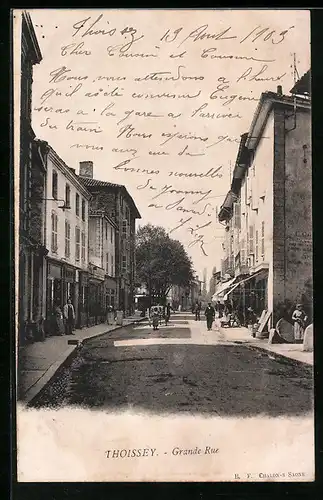 Thoissey 19 Aout 1903
Cher Cousin et Cousine
Nous vous attendons a l'heure
qu'il a été convenu Eugène
sera à la gare a l'arrivée
du train Nous espérons que
vous avez eu de
bonnes nouvelles
THOISSEY. - Grande Rue
B. F. CHALON-S-SAONE